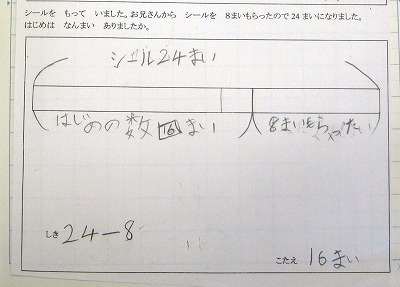 シールを もって いました。お兄さんから シールを 8まいもらったので24まいになりました。
はじめは なんまい ありましたか。
シール24まい
はじめの数 16 まい
8まいもらった
しき 24-8
こたえ 16まい